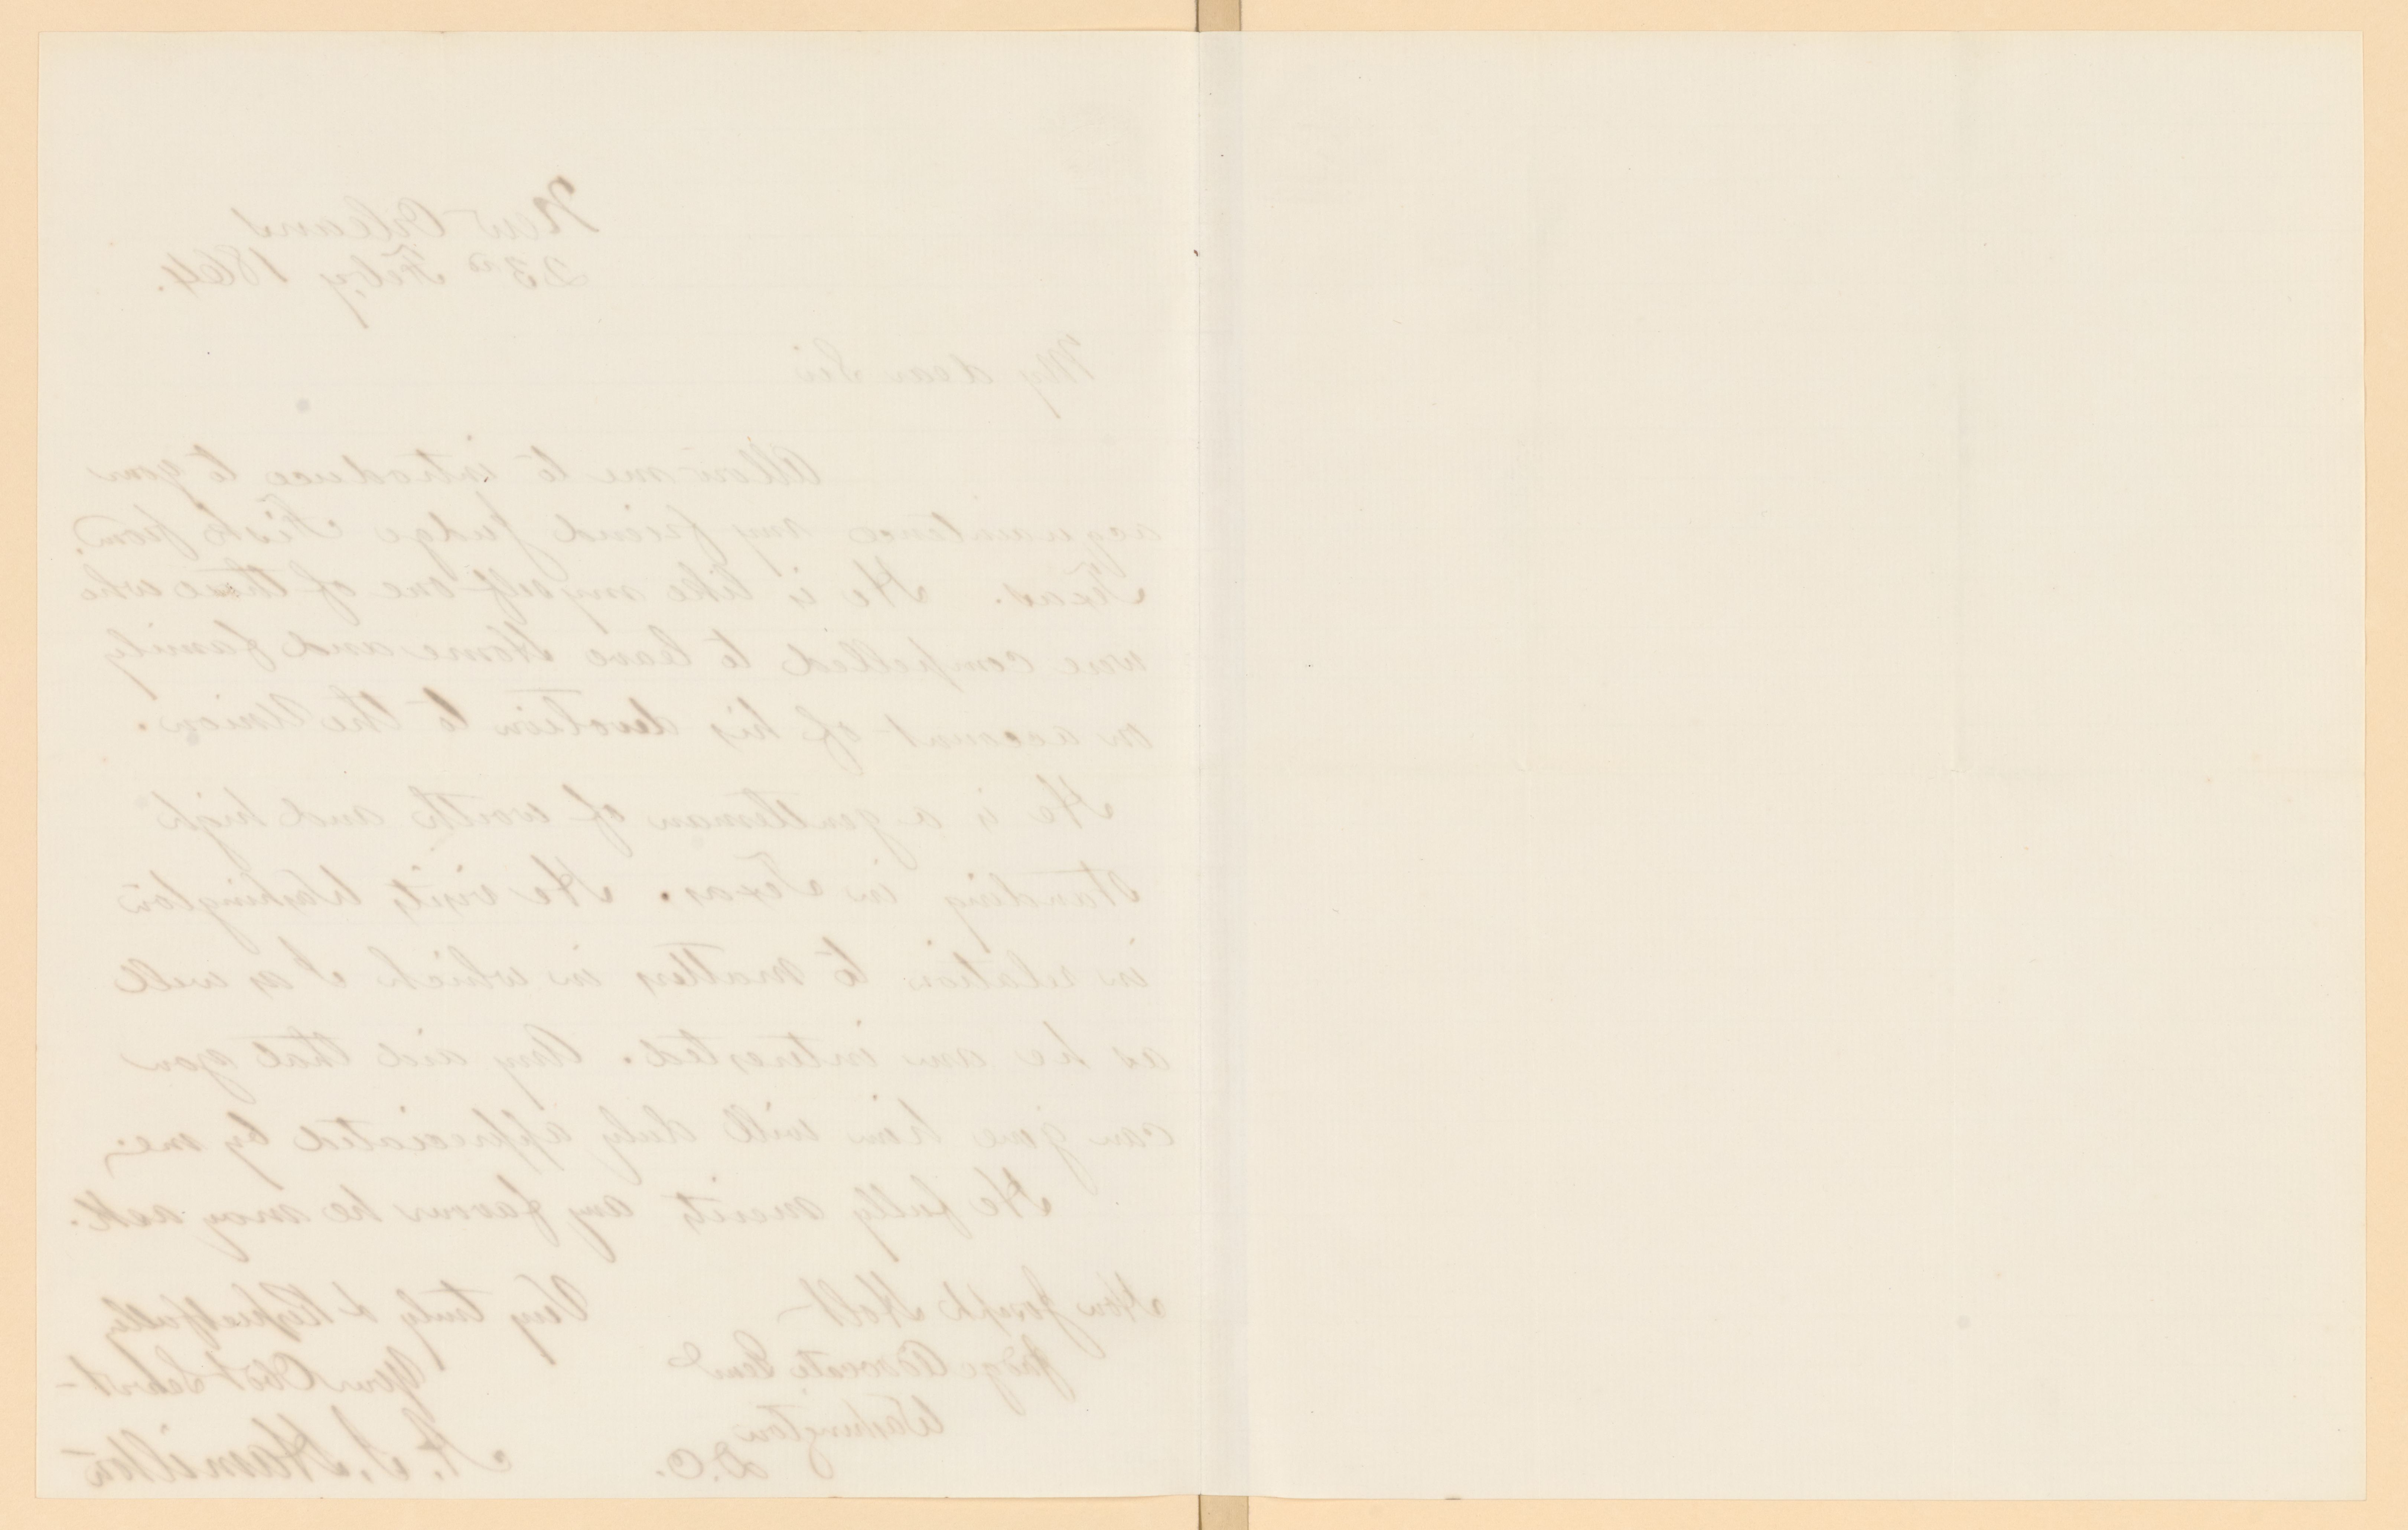 New Orleans
23rd Feby 1864.
My dear Sir
Allow me to introduce to your
acquaintance my friend Judge Fisk from
Texas. He is like myself one of those who
were compelled to leave Home and family
on account of his devotion to the Union.
He is a gentleman of worth and high
standing in Texas. He visits Washington
in relation to matters in which I as well
as he am interested. Any aid that you
can give him will duly appreciated by me;
He fully merits any favour he may ask.
Very truly & Respectfully
Your Obt Servt-
A. J. Hamilton
Hon Joseph Holt-
Judge Advocate Genl
Washington
D.C.